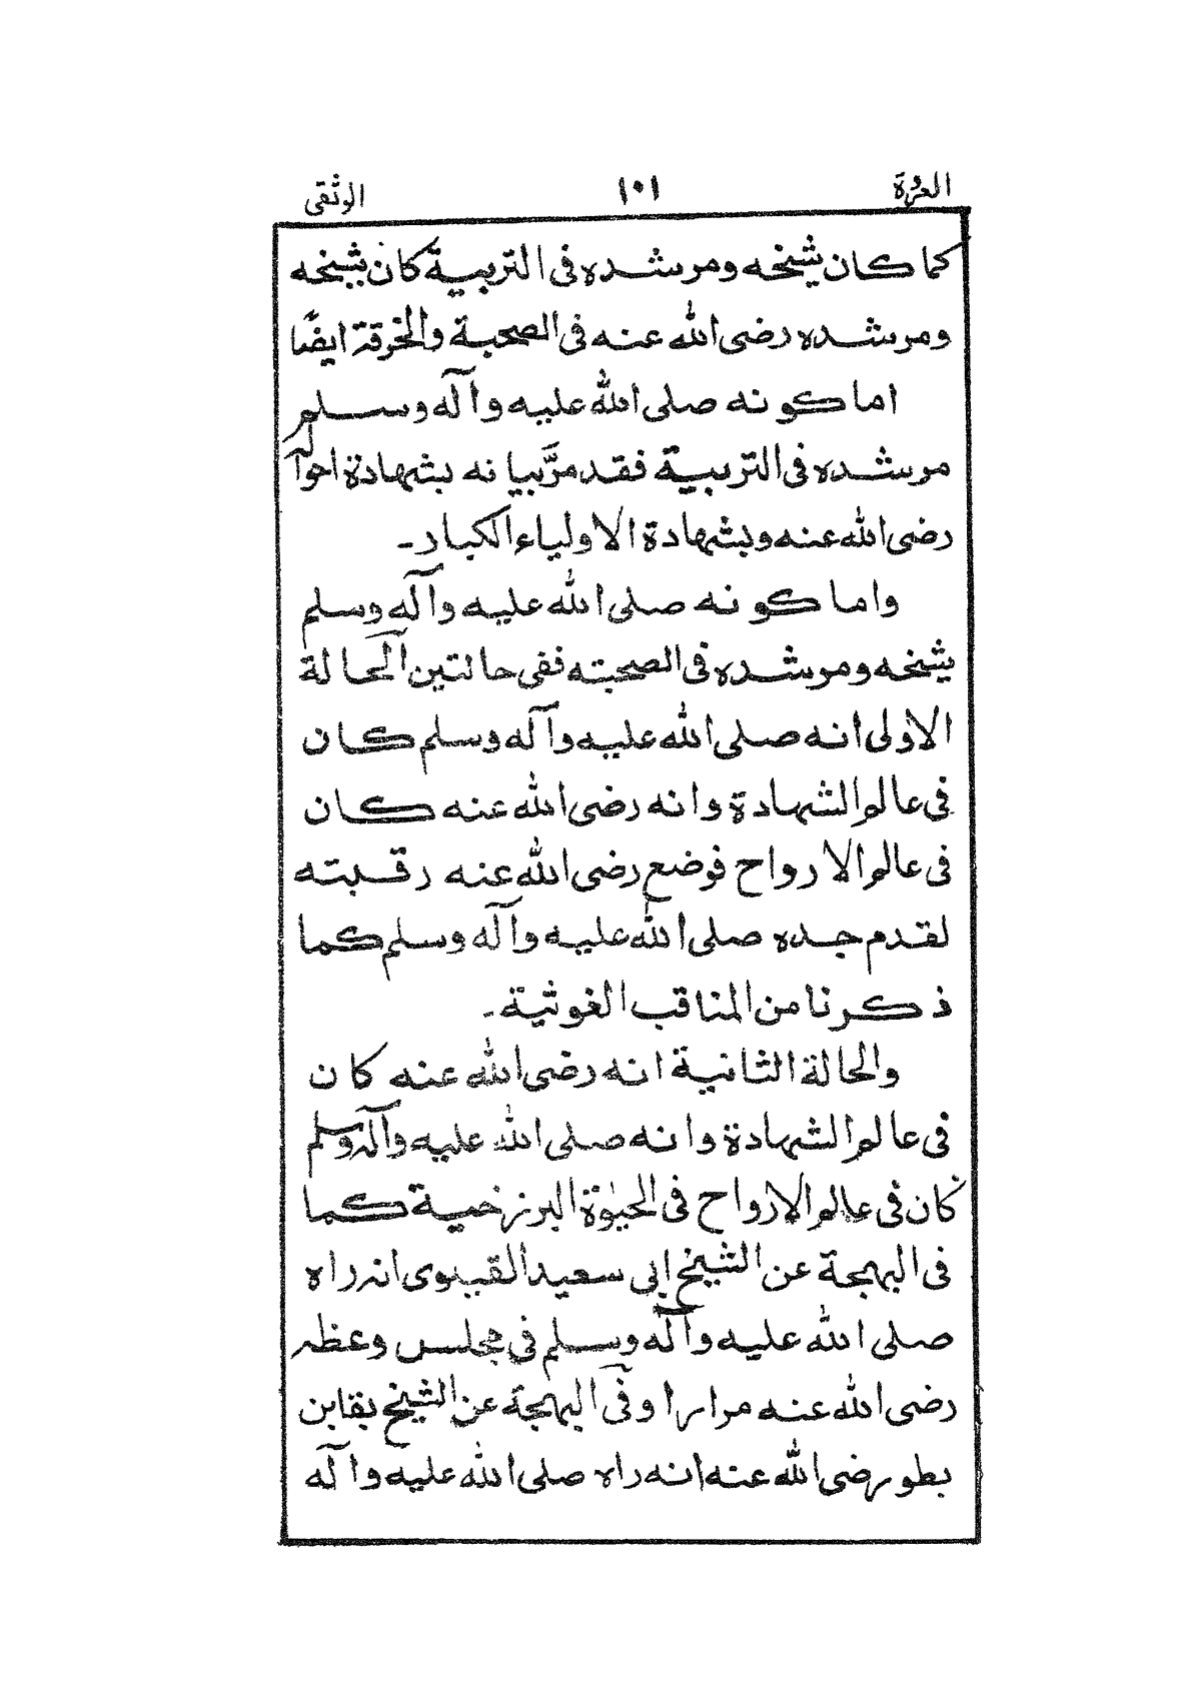 العروة ١٠١ الوثقى
كما كان شيخه ومرشده فى التربية كان شيخه
ومرشده رضى الله عنه فى الصحبة والخرقة ايضًا
اما كونه صلى الله عليه وآله وسلم
مرشده فى التربية فقد مرّ بيانه بشهادة احواله
رضى الله عنه وبشهادة الاولياء الكبار۔
واما كونه صلى الله عليه وآله وسلم
شيخه ومرشده فى الصحبته ففى حالتين الحالة
الاولى انه صلى الله عليه وآله وسلم كان
فى عالم الشهادة وانه رضى الله عنه كان
فى عالم الارواح فوضع رضى الله عنه رقبته
لقدم جده صلى الله عليه وآله وسلم كما
ذكرنا من المناقب الغوثية۔
والحالة الثانية انه رضى الله عنه كان
فى عالم الشهادة وانه صلى الله عليه وآله وسلم
كان فى عالم الارواح فى الحيٰوة البرزخية كما
فى البهجة عن الشيخ ابى سعيد القيلوى انه راه
صلى الله عليه وآله وسلم فى مجلس وعظه
رضى الله عنه مرارا وفى البهجة عن الشيخ بقابن
بطو رضى الله عنه انه راه صلى الله عليه وآله